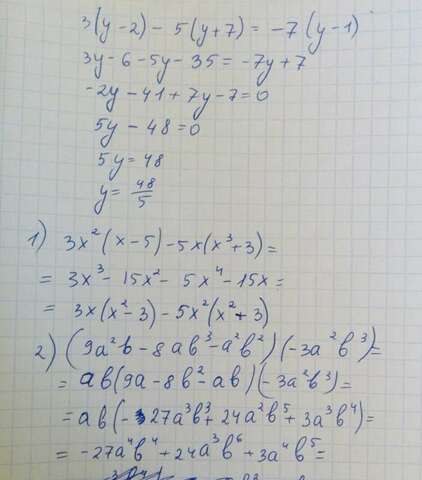 3(y-2) - 5(y+7) = -7(y-1)
3y-6-5y-35=-7y+7
-2y-41+7y-7=0
5y-48=0
5y=48
y=48/5
1) 3x²(x-5)-5x(x³+3)=
= 3x³-15x²-5x⁴-15x=
= 3x(x²-3)-5x²(x²+3)
2) (9a²b-8ab³-a²b²)(-3a²b³)=
= ab(9a-8b²-ab)(-3a²b³)=
= ab(-27a³b³+24a²b⁵+3a³b⁴)=
= -27a⁴b⁴+24a³b⁶+3a⁴b⁵=